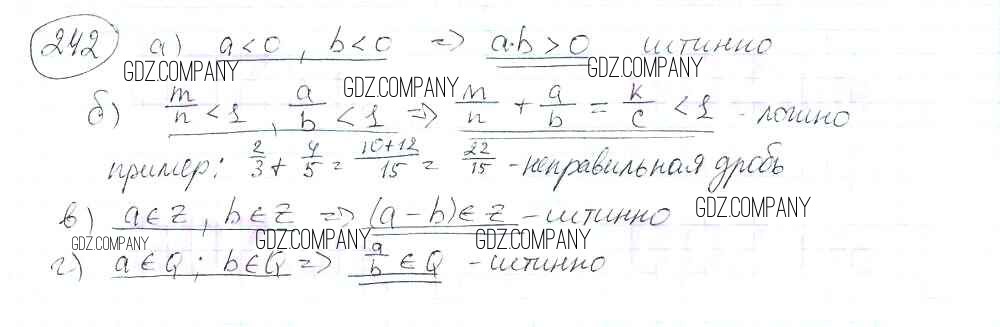 242 а) a<0, b<0 => a·b>0 истинно
GDZ.COMPANY GDZ.COMPANY GDZ.COMPANY
б) m/n < 1, a/b < 1 => m/n + a/b = k/c < 1 - ложно
пример: 2/3 + 4/5 = 10+12/15 = 22/15 - неправильная дробь
в) a∈Z, b∈Z => (a-b)∈Z - истинно GDZ.COMPANY
GDZ.COMPANY GDZ.COMPANY GDZ.COMPANY
г) a∈Q; b∈Q => a/b ∈Q - истинно